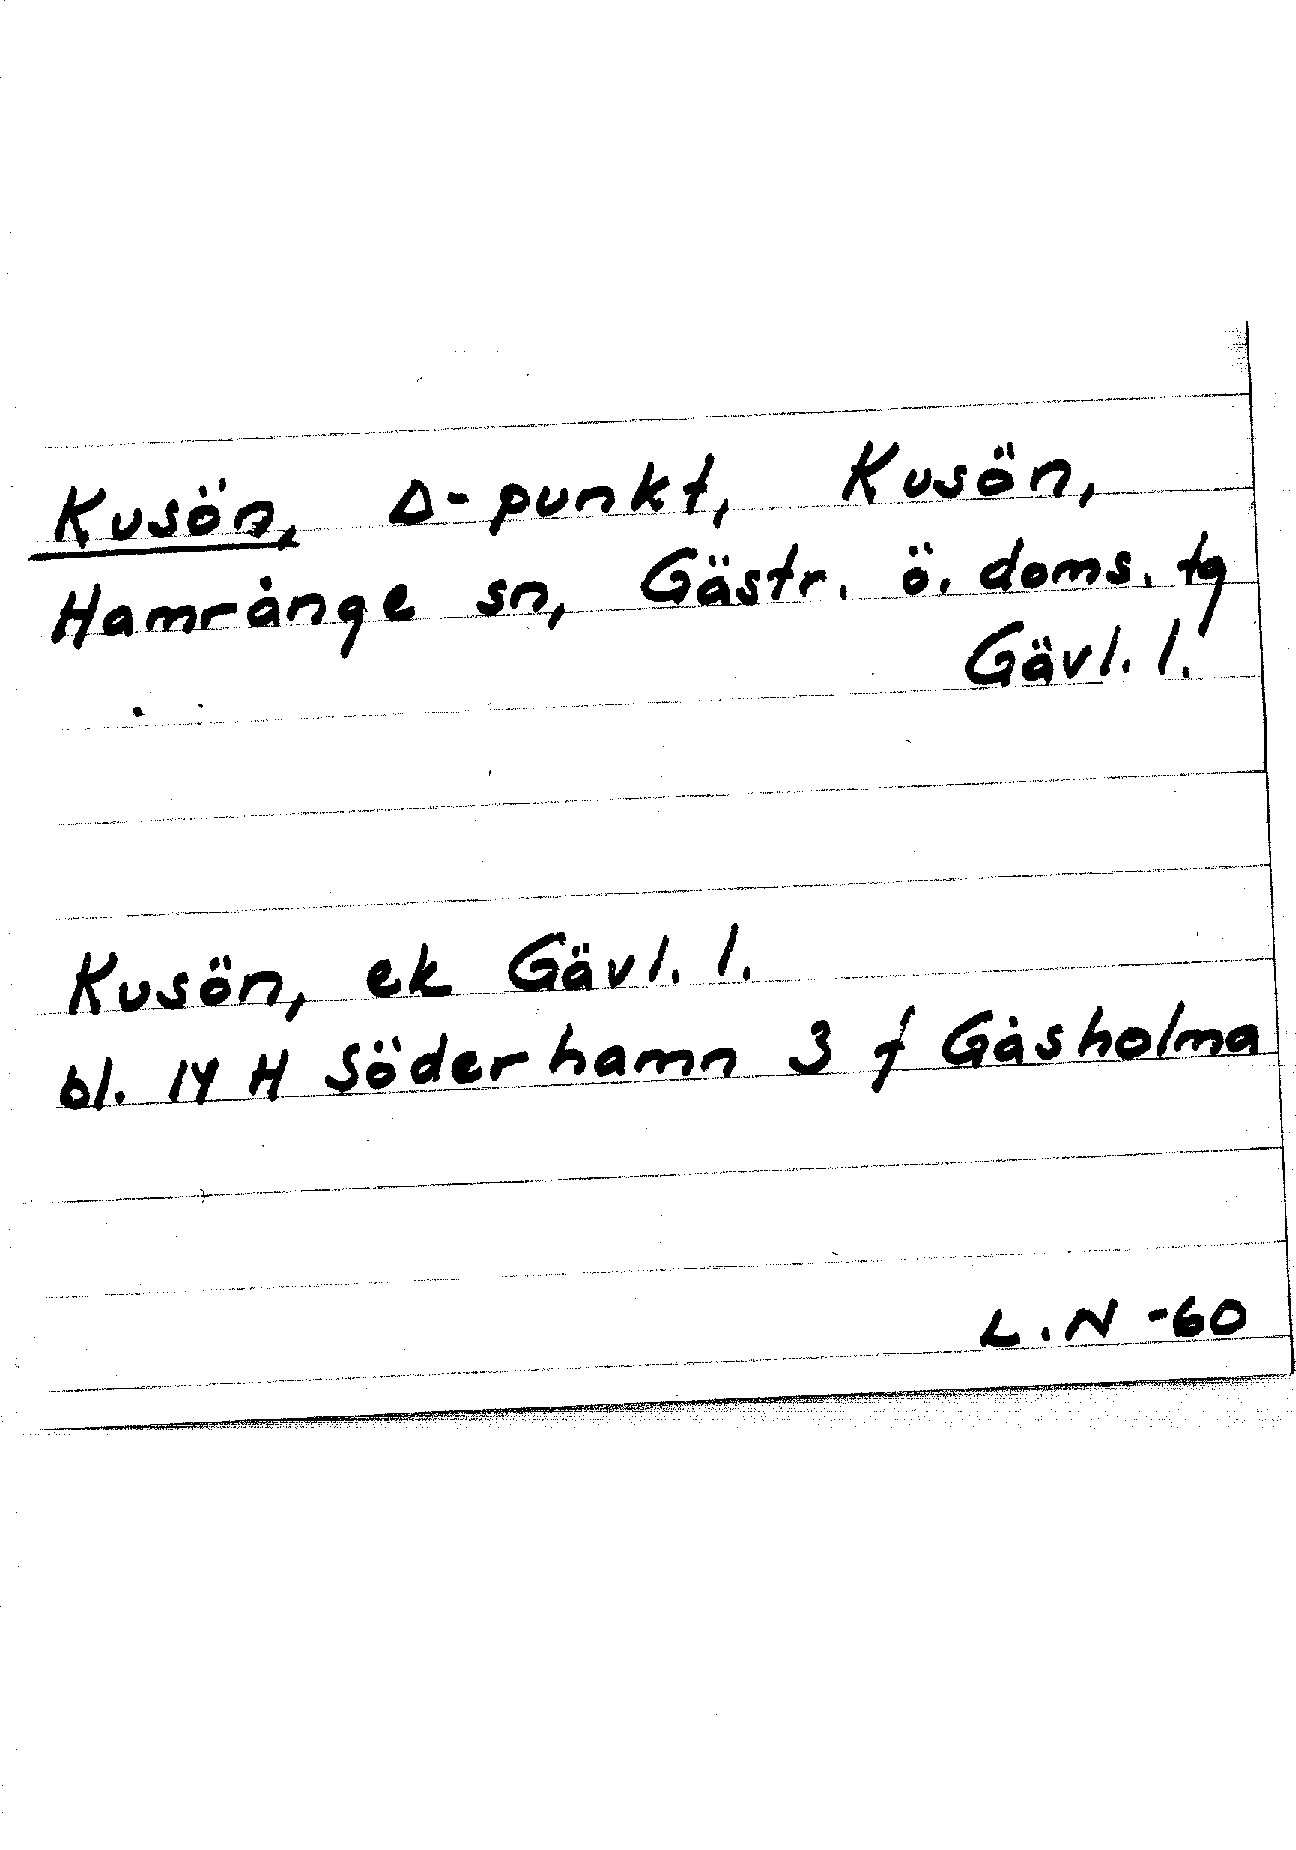 Kusön, Δ-punkt, Kusön,
Hamrånge sn, Gästr. ö. doms. tg
Gävl. l.
Kusön, ek Gävl. l.
bl. 14 H Söderhamn 3 f Gåsholma
L.N -60